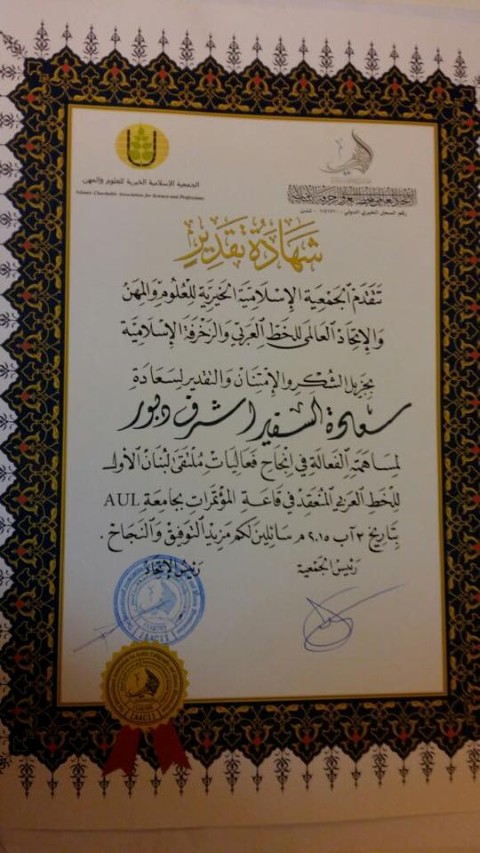 الجمعية الإسلامية الخيرية للعلوم والمهن
Islamic Charitable Association for Science and Professions
الإتحاد العالمي للخط العربي والزخرفة الإسلامية
رقم السجل الخيري الدولي
لندن
شهادة تقدير
تتقدم الجمعية الإسلامية الخيرية للعلوم والمهن
والإتحاد العالمي للخط العربي والزخرفة الإسلامية
بجزيل الشكر والإمتنان والتقدير لسعادة
سعادة السفير اشرف دبور
لمساهمته الفعالة في إنجاح فعاليات ملتقى لبنان الأول
للخط العربي المنعقد في قاعة المؤتمرات بجامعة AUL
بتاريخ ٣ آب ٢٠١٥ م سائلين لكم مزيد التوفيق والنجاح .
رئيس الجمعية
رئيس الإتحاد